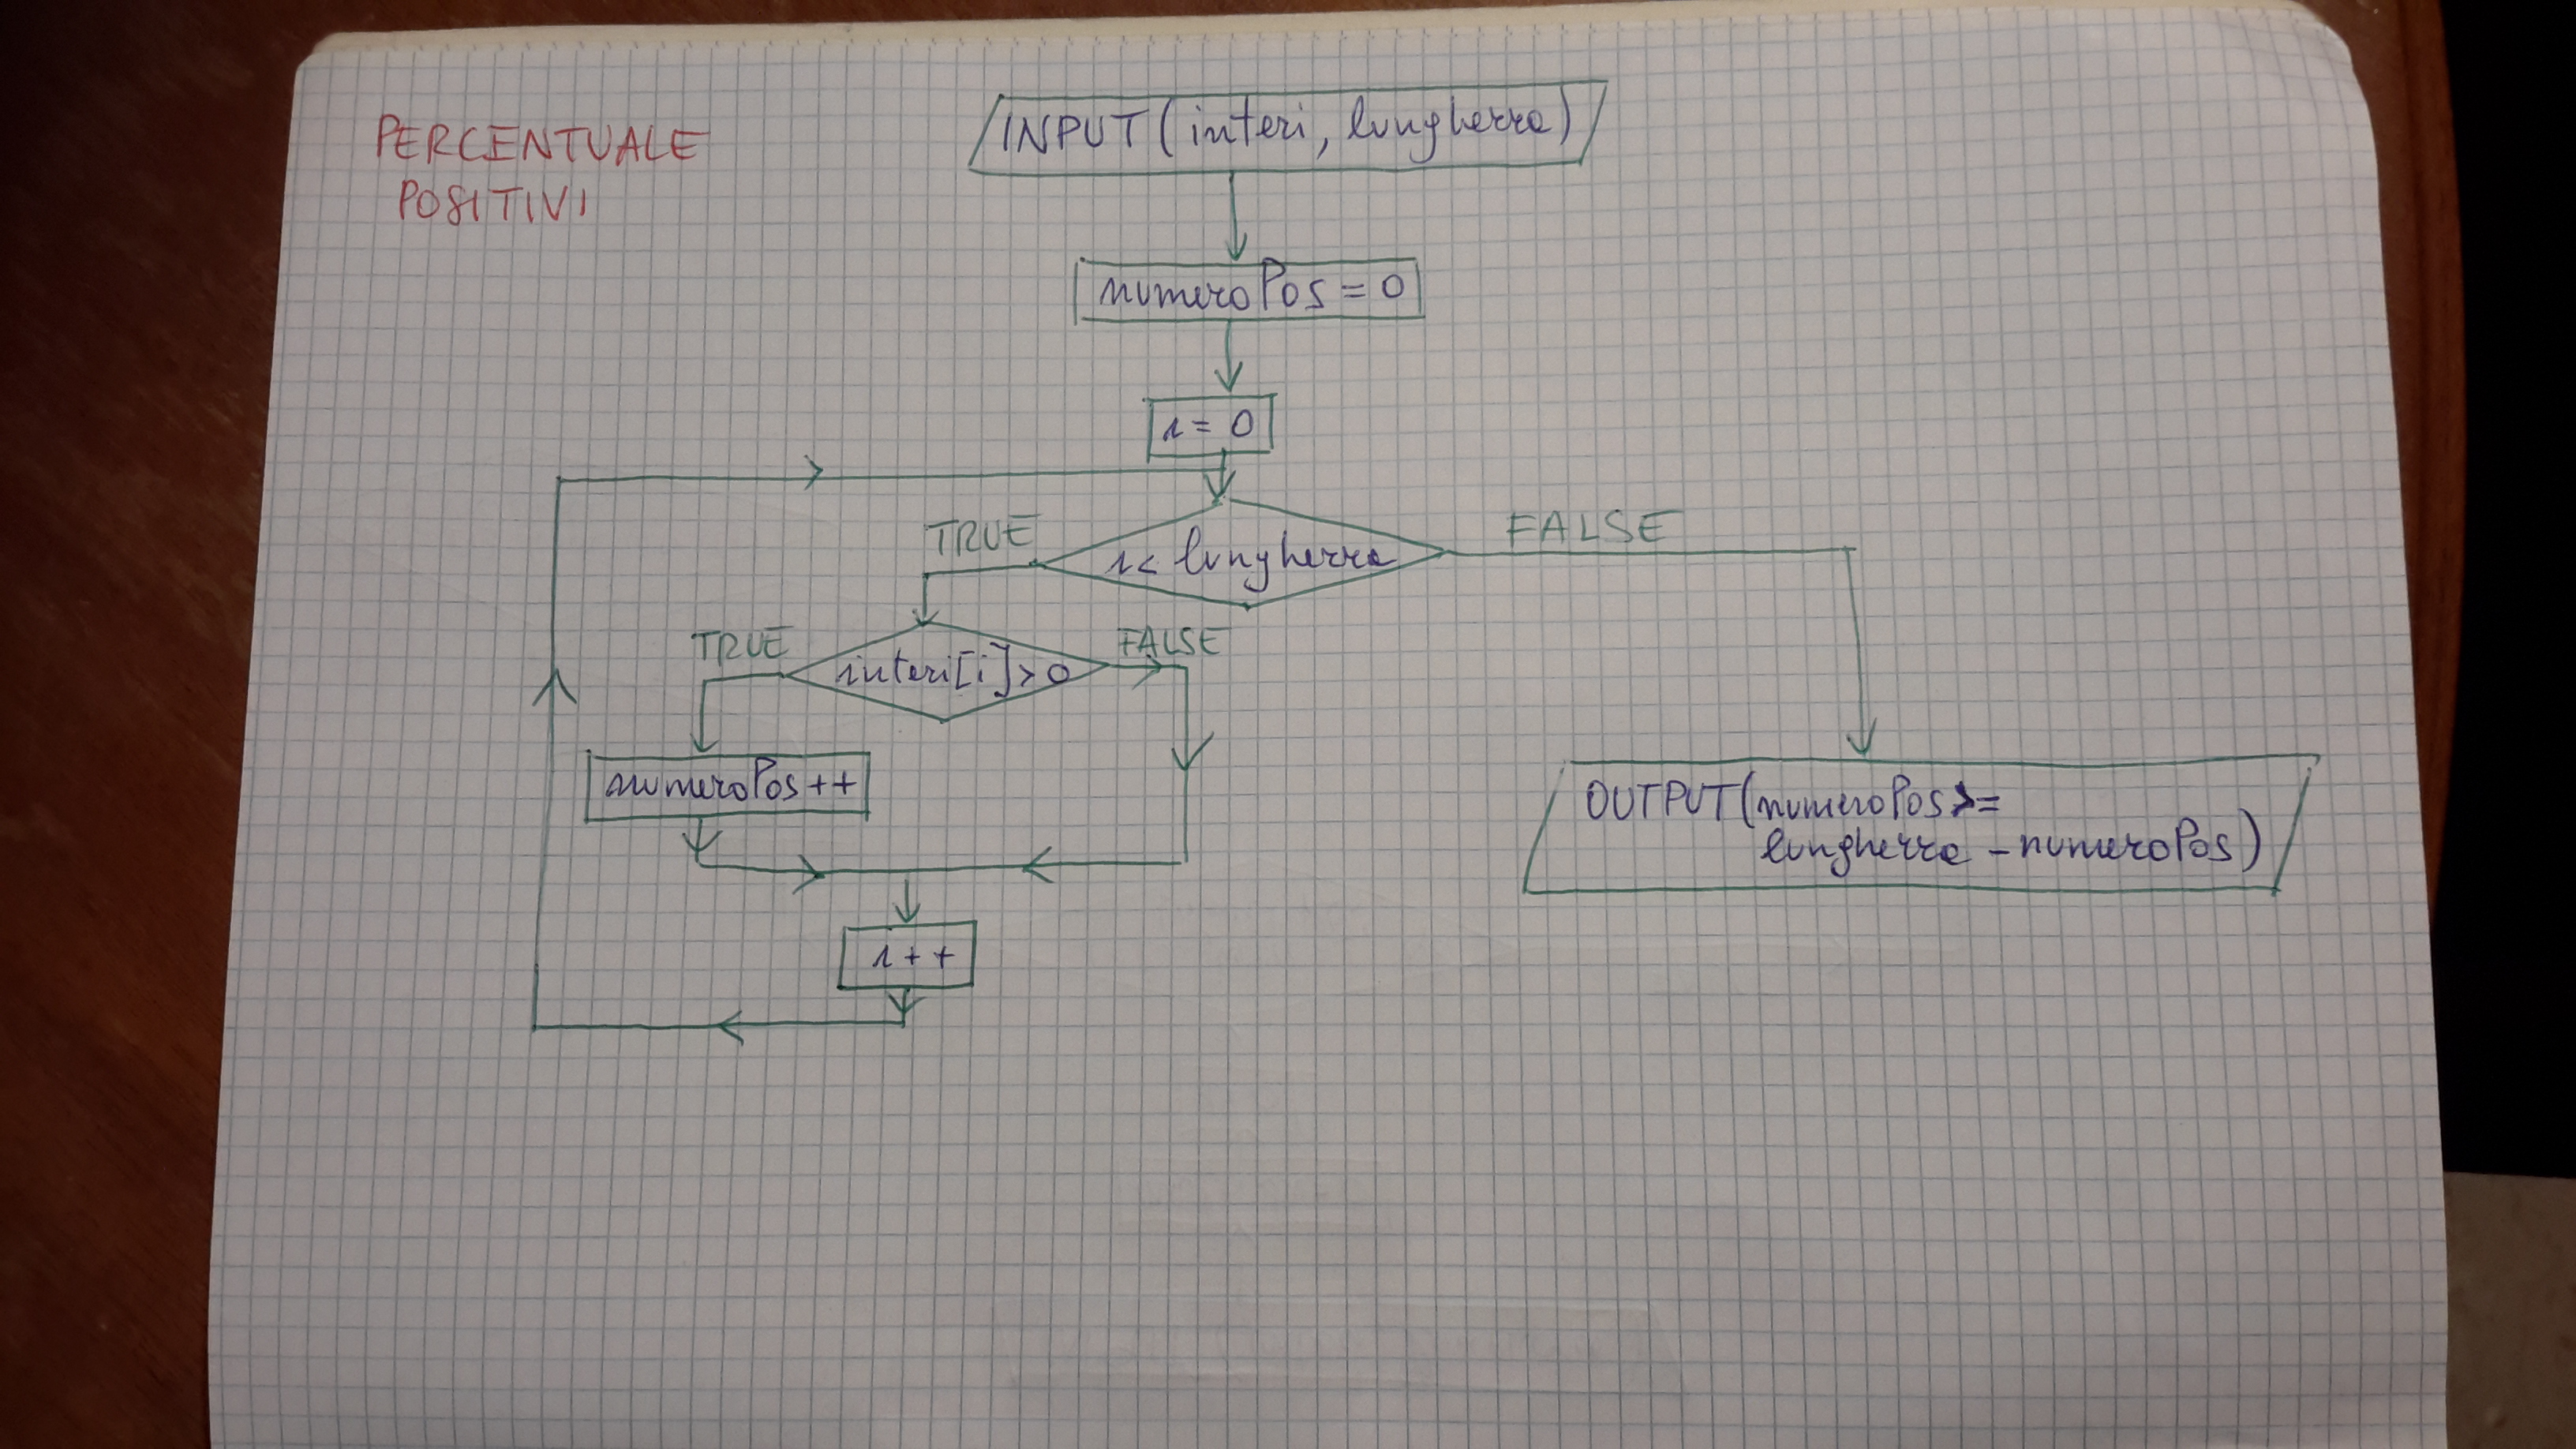 PERCENTUALE
POSITIVI
INPUT(interi, lunghezza)
numeroPos = 0
i = 0
TRUE
i < lunghezza
FALSE
TRUE
interi[i] > 0
FALSE
numeroPos++
OUTPUT(numeroPos >=
lunghezza - numeroPos)
i++